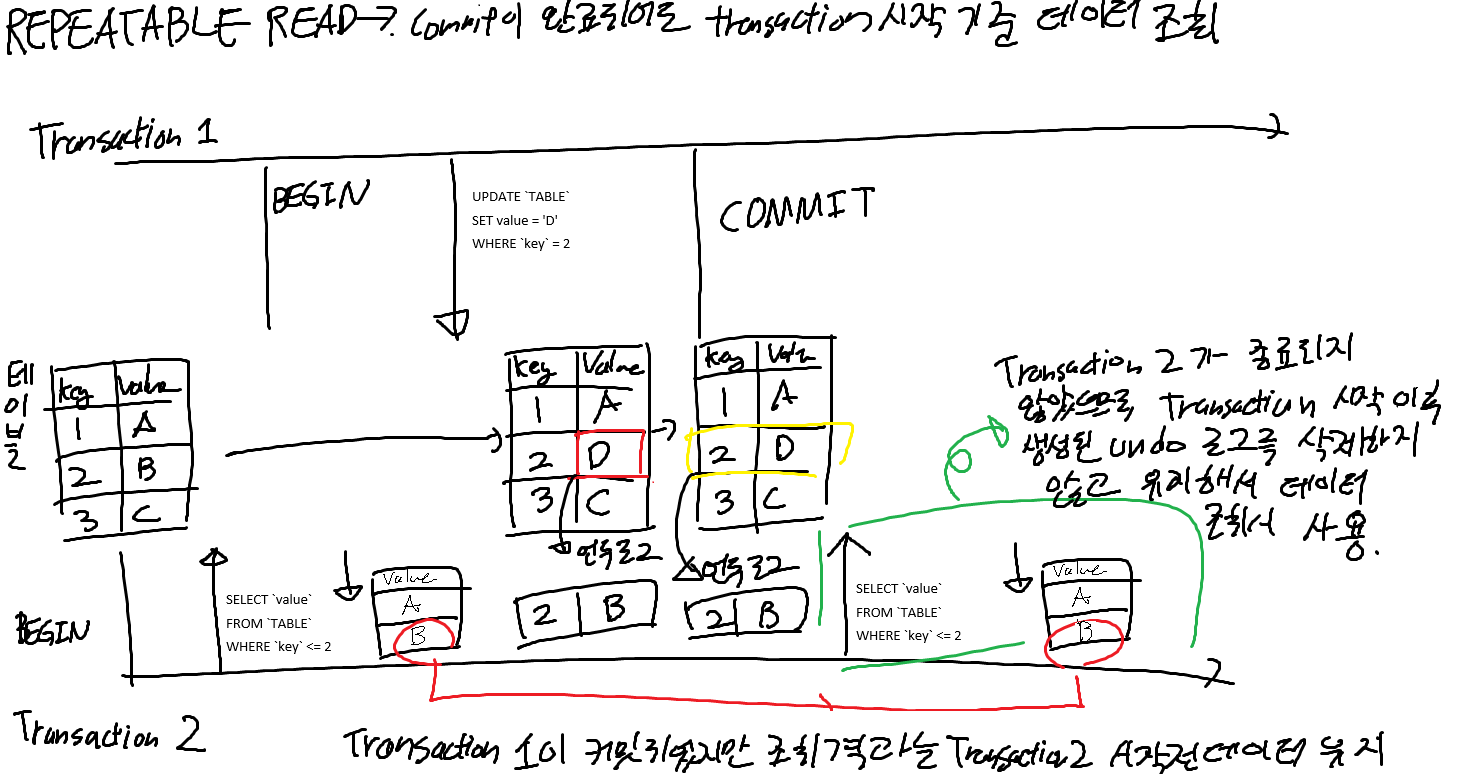 REPEATABLE READ → Commit이 완료되어도 transaction 시작 기준 데이터 조회
Transaction 1
BEGIN
UPDATE `TABLE`
SET value = 'D'
WHERE `key` = 2
COMMIT
테이블
key Value
1 A
2 B
3 C
key Value
1 A
2 D
3 C
key Value
1 A
2 D
3 C
Transaction 2가 종료되지
않았으므로 Transaction 시작 이후
생성된 undo 로그를 삭제하지
않고 유지해서 데이터
조회시 사용.
언두로그
2 B
언두로그
2 B
BEGIN
SELECT `value`
FROM `TABLE`
WHERE `key` <= 2
Value
A
B
SELECT `value`
FROM `TABLE`
WHERE `key` <= 2
Value
A
B
Transaction 2
Transaction 1이 커밋되었지만 조회결과는 Transaction2 시작전데이터 유지